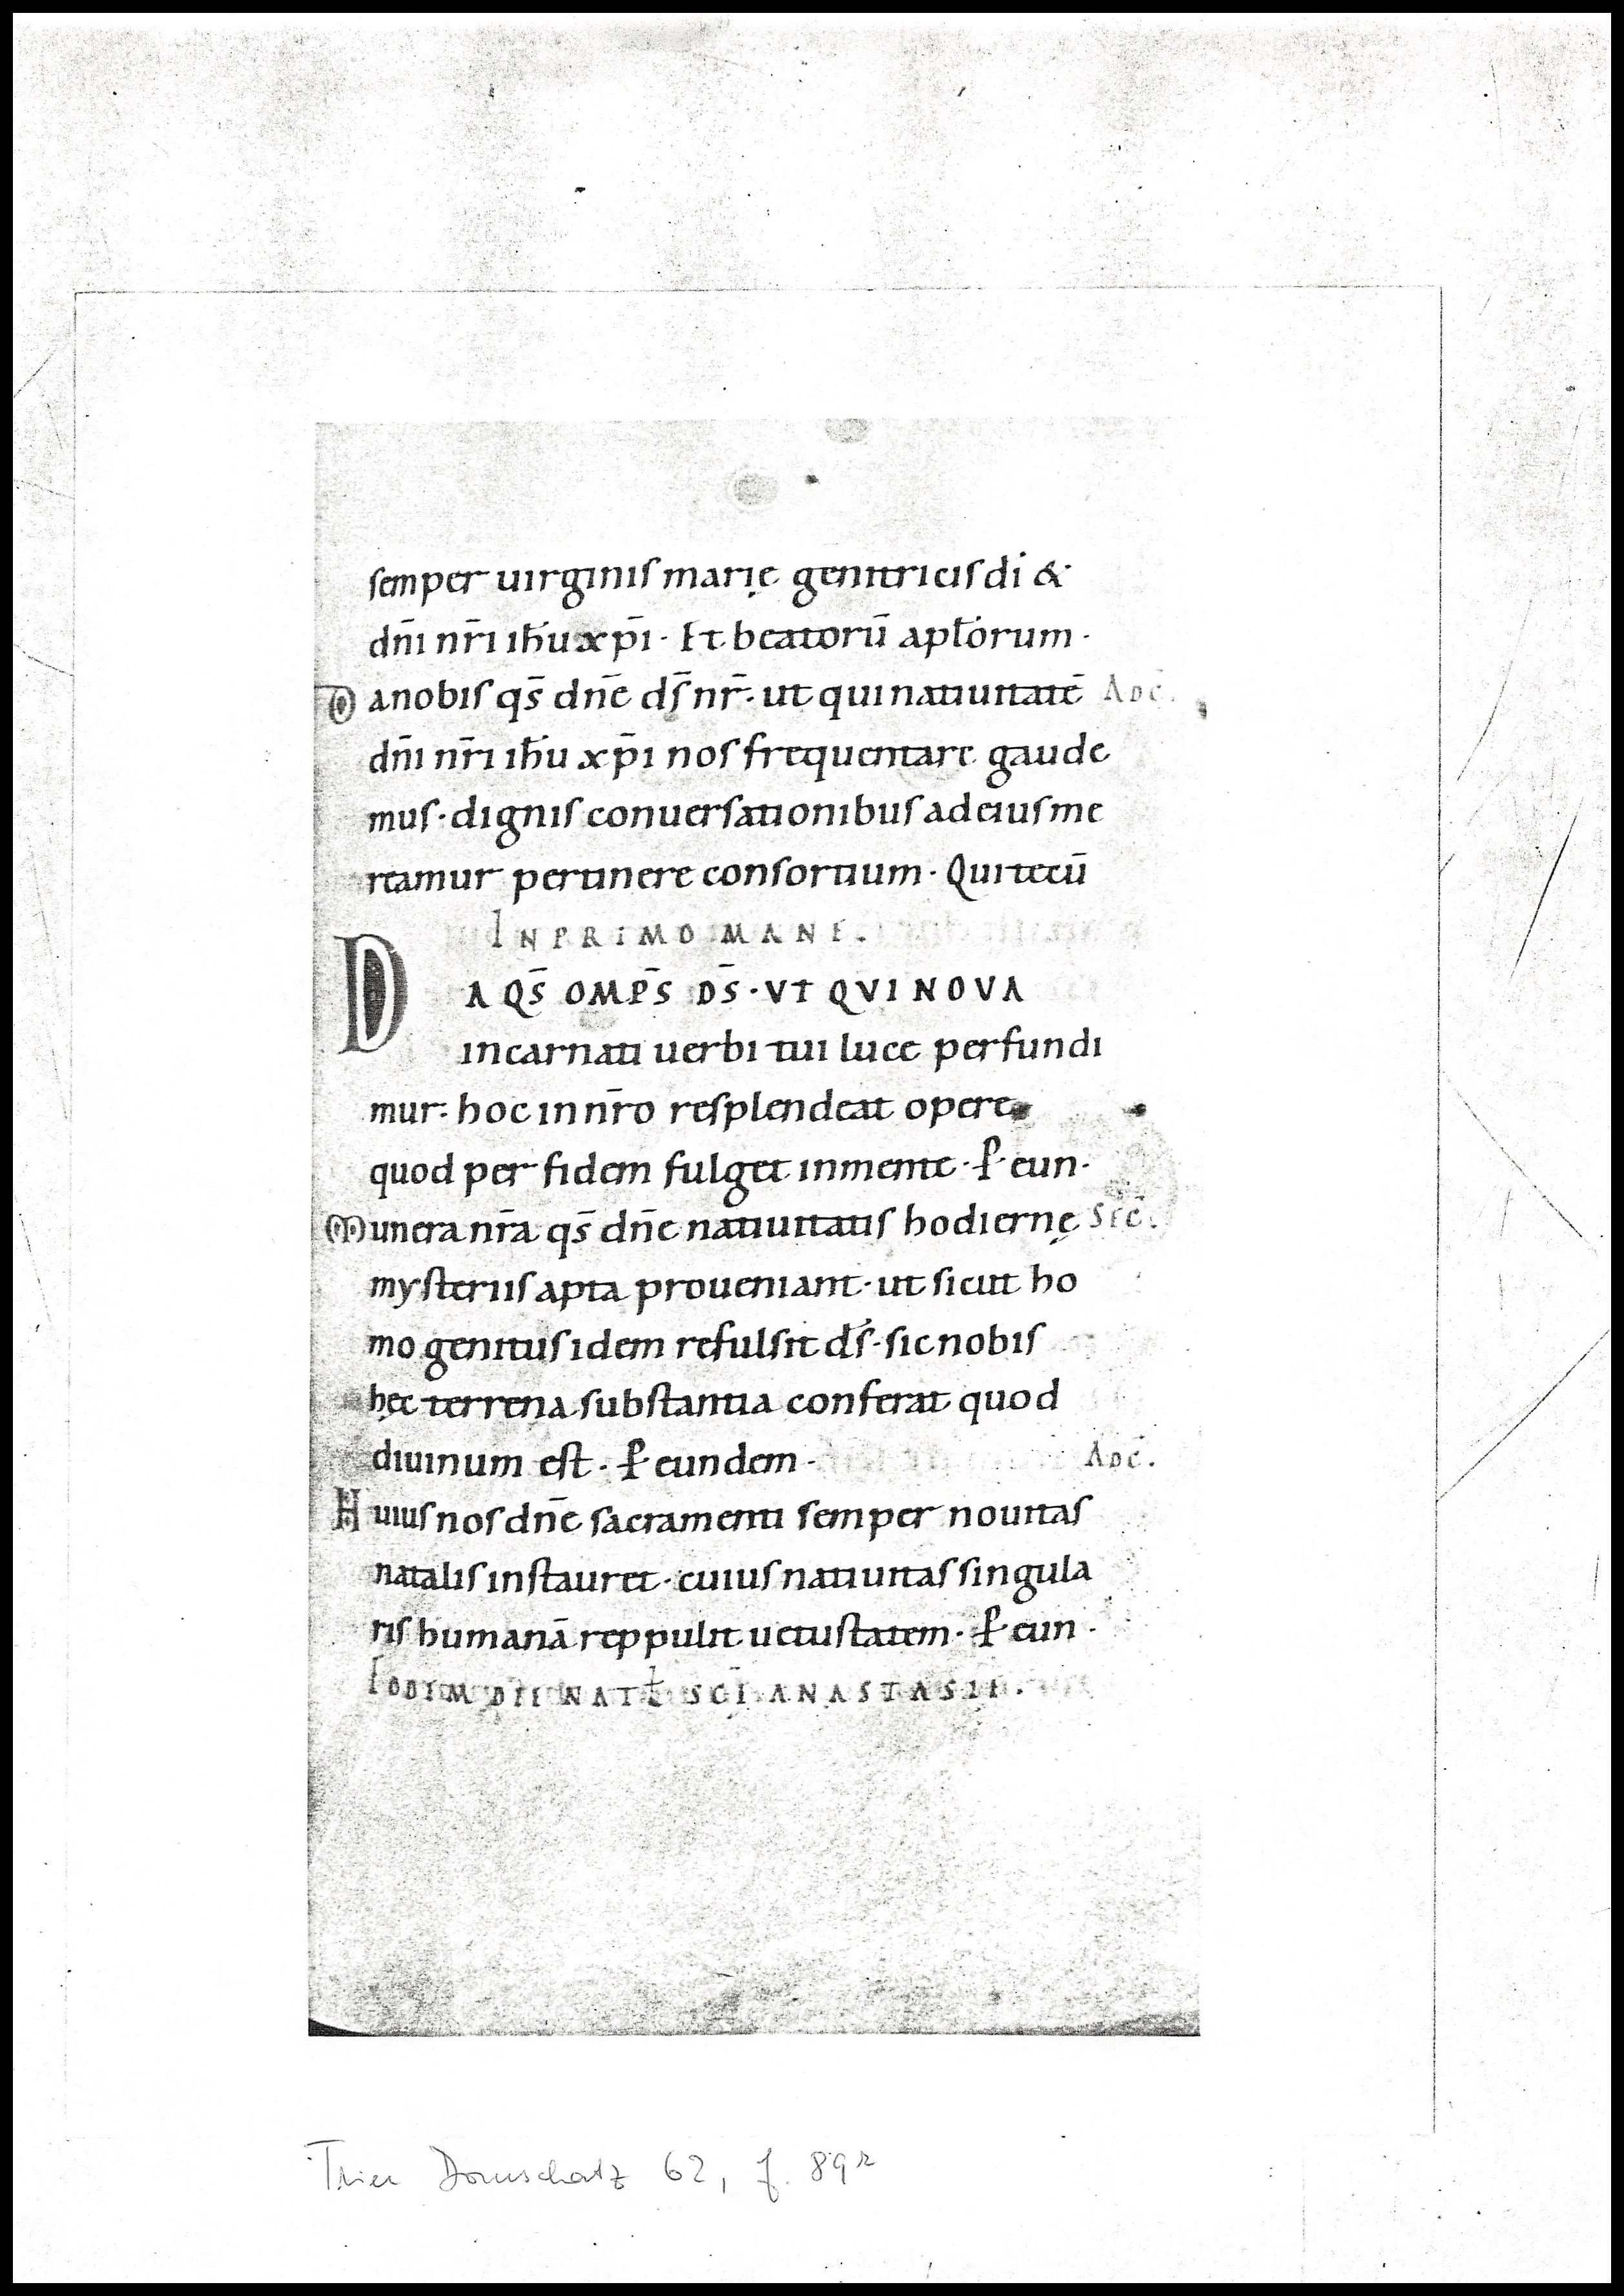 semper uirginis marię genitricis di &
dn̄i nr̄i ih̄u xp̄i · Et beatorū apl̄orum ·
Da nobis qs̄ dn̄e ds̄ nr̄ · ut qui natiuitatē Adc̄.
dn̄i nr̄i ih̄u xp̄i nos frequentare gaude
mus · dignis conuersationibus ad eius me
reamur pertinere consortium · Qui tecū
IN PRIMO MANE.
DA QS̄ OMP̄S DS̄ · VT QVI NOVA
incarnati uerbi tui luce perfundi
mur: hoc in nr̄o resplendeat opere
quod per fidem fulget in mente · P eun ·
Munera nr̄a qs̄ dn̄e natiuitatis hodiernę Sec̄.
mysteriis apta proueniant · ut sicut ho
mo genitus idem refulsit ds̄ · sic nobis
hęc terrena substantia conferat quod
diuinum est · P eundem · Adc̄.
Huius nos dn̄e sacramenti semper nouitas
natalis instauret · cuius natiuitas singula
ris humanā reppulit uetustatem · P eun ·
EODEM DIE NATL̄ SCĪ ANASTASIE.
Trier Domschatz 62, f. 89r